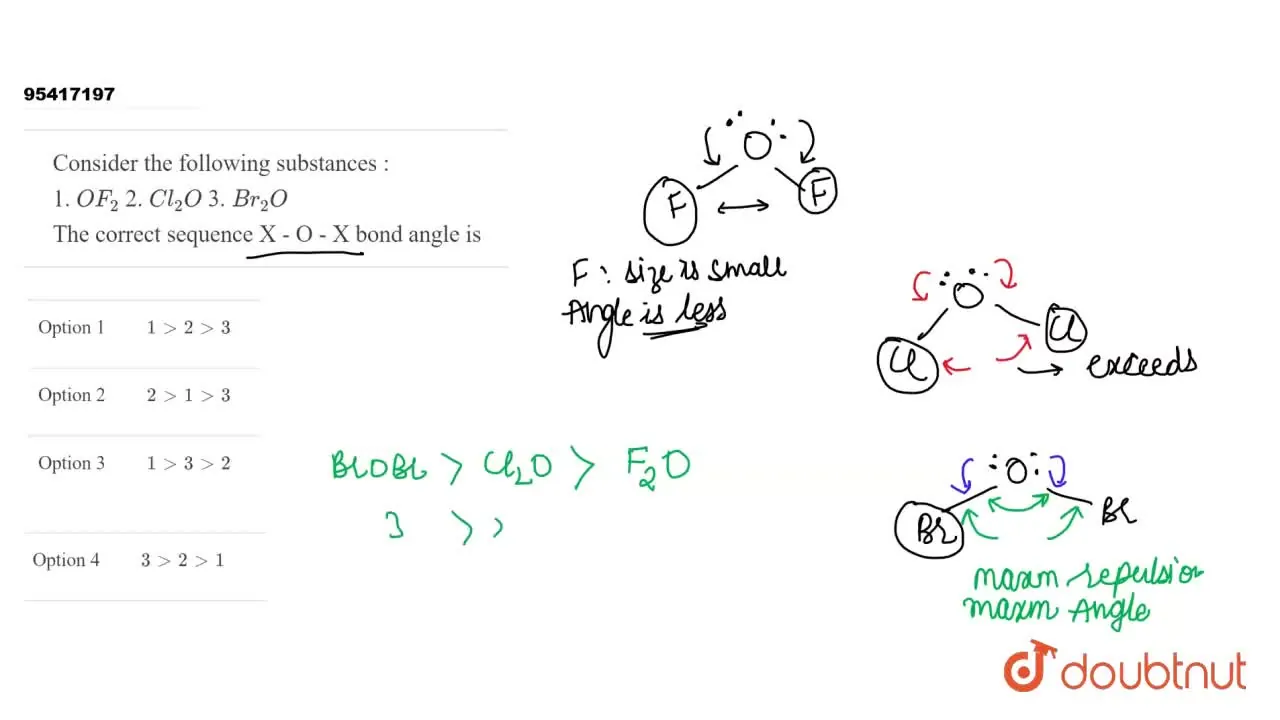 95417197
Consider the following substances :
1. OF₂ 2. Cl₂O 3. Br₂O
The correct sequence X - O - X bond angle is
Option 1 1 > 2 > 3
Option 2 2 > 1 > 3
Option 3 1 > 3 > 2
Option 4 3 > 2 > 1
O
F F
F : size is small
Angle is less
O
Cl Cl
exceeds
BrOBr > Cl₂O > F₂O
3 >
O
Br Br
maxm repulsion
maxm Angle
doubtnut